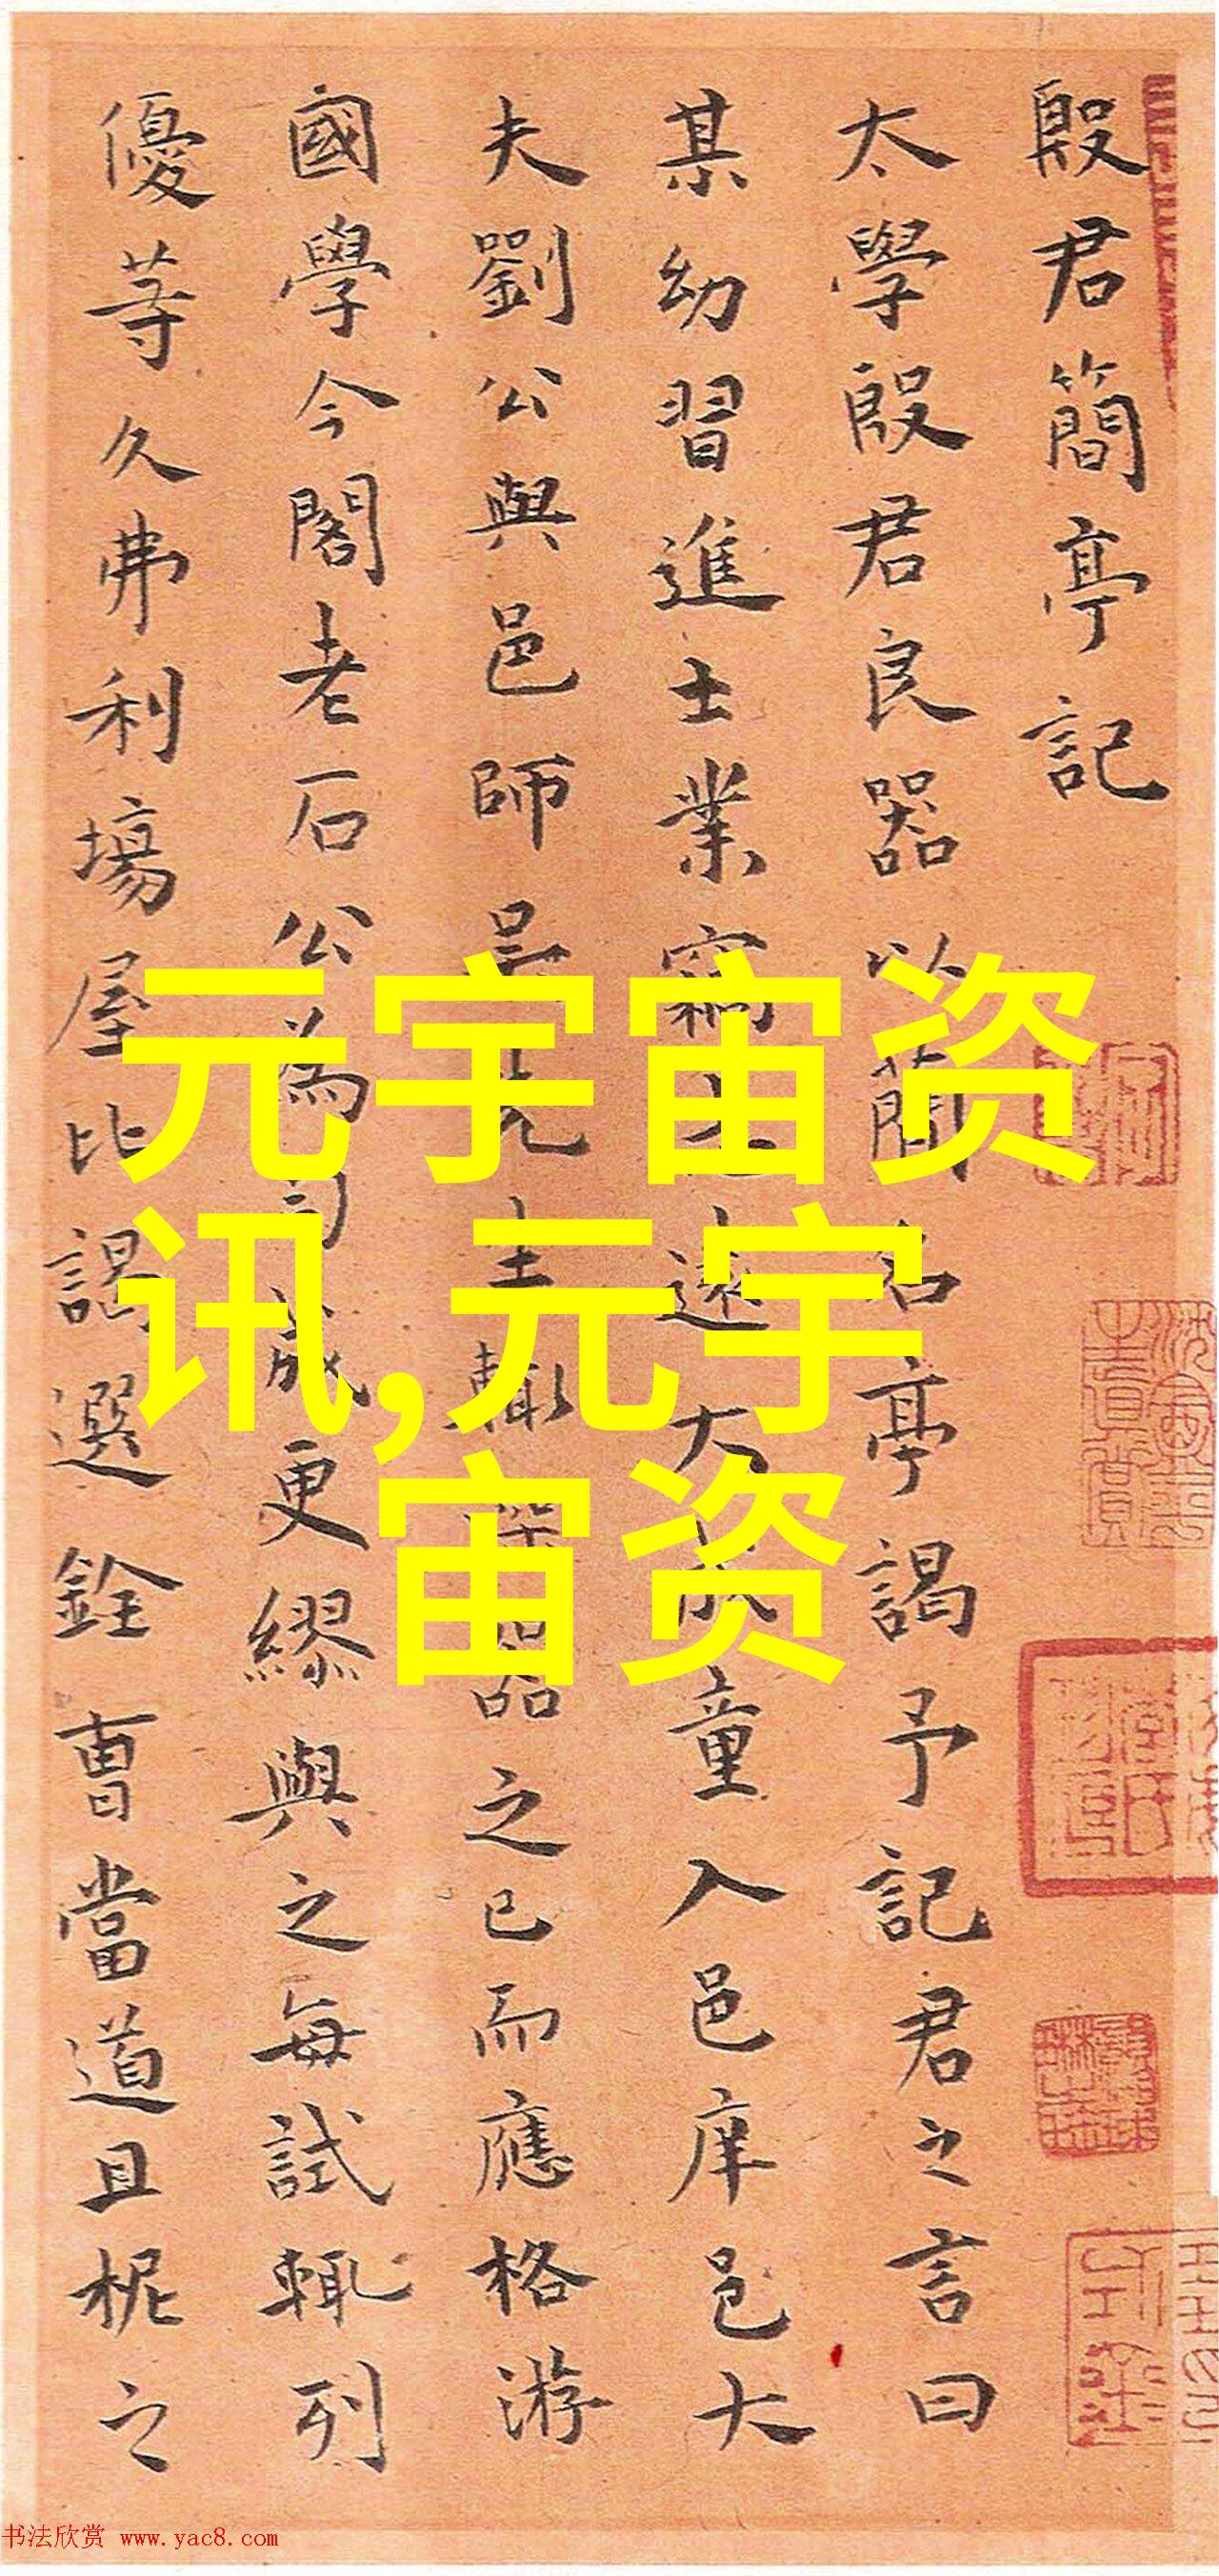 殷君簡亭記
太學殷君良器以簡名亭謁予記君之言曰
某幼習進士業竊遠大成童入邑庠邑大
夫劉公與邑師吳先生轍器之已而應格游
國學今閣老石公為司成更繆與之每試輒列
優等久弗利場屋比謁選銓曹當道且柅之
元宇宙资
讯,元宇
宙资
书法欣赏 www.yac8.com